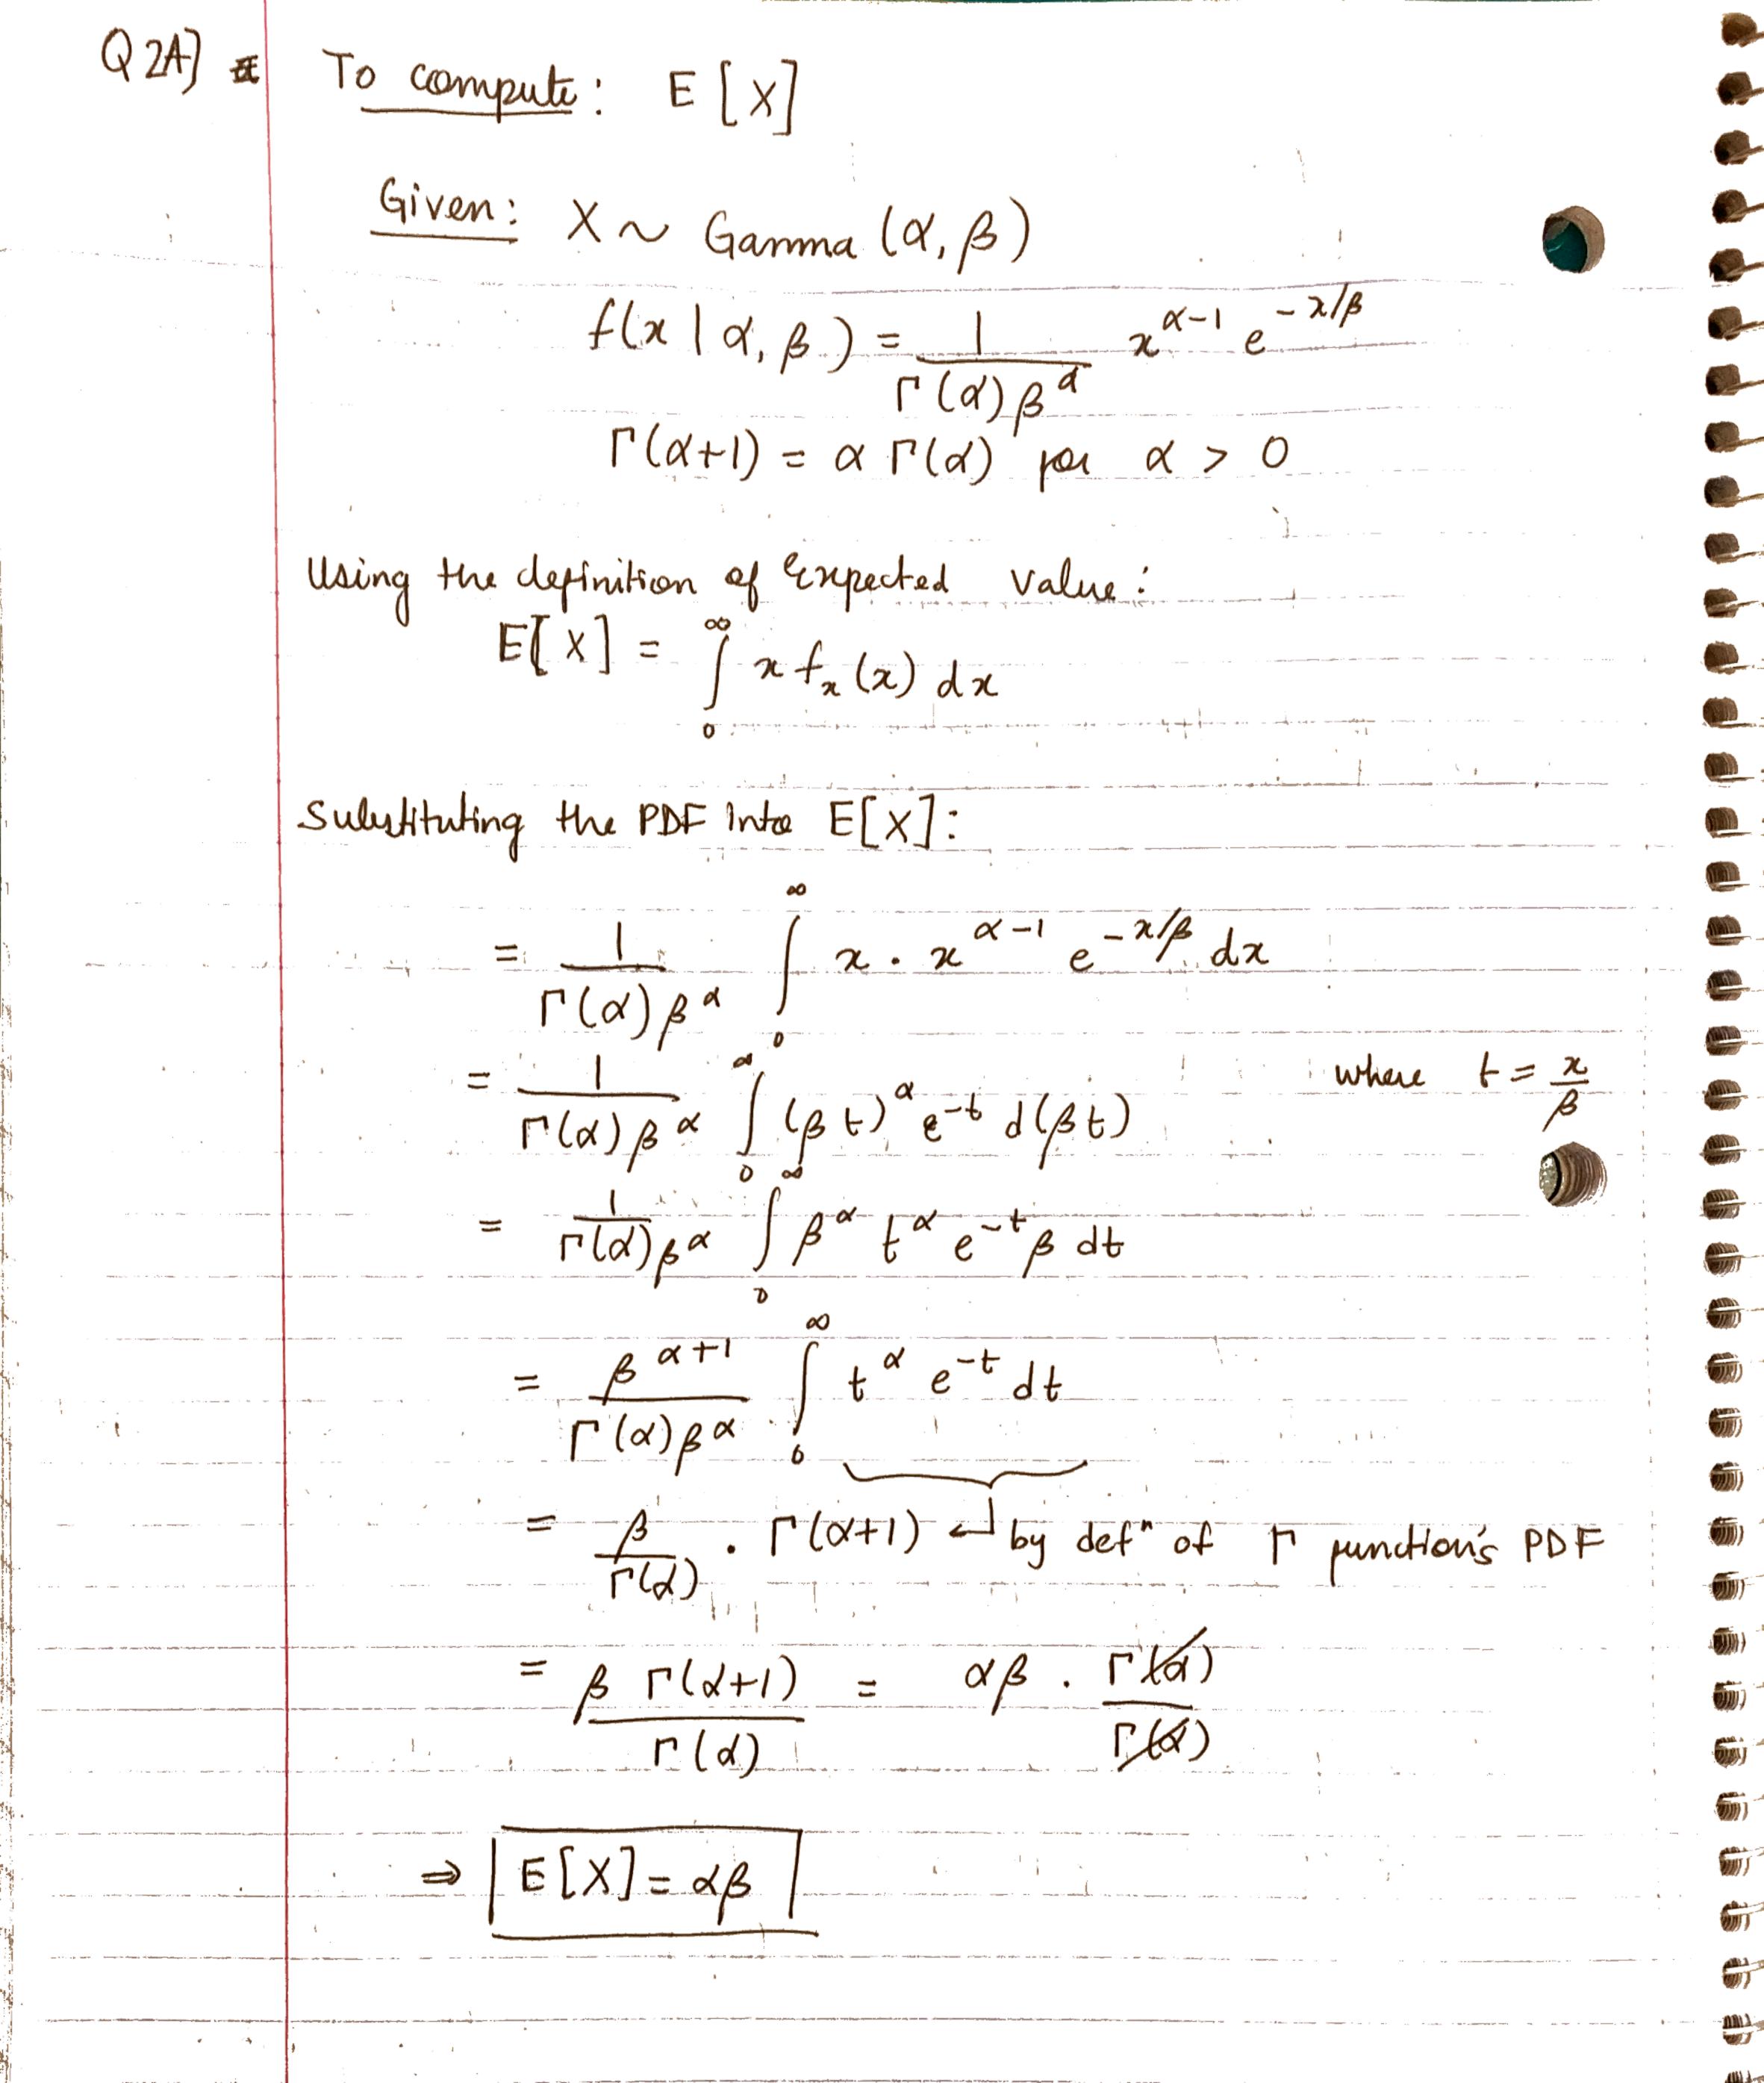 Q2A] To compute: E[X]
Given: X ~ Gamma (α, β)
f(x | α, β) = 1 / Γ(α) β^α x^(α-1) e^(-x/β)
Γ(α+1) = α Γ(α) for α > 0
Using the definition of Expected Value:
E[X] = ∫_0^∞ x f_x(x) dx
Substituting the PDF Into E[X]:
= 1 / Γ(α) β^α ∫_0^∞ x · x^(α-1) e^(-x/β) dx
= 1 / Γ(α) β^α ∫_0^∞ (βt)^α e^(-t) d(βt) where t = x/β
= 1 / Γ(α) β^α ∫_0^∞ β^α t^α e^(-t) β dt
= β^(α+1) / Γ(α) β^α ∫_0^∞ t^α e^(-t) dt
= β / Γ(α) · Γ(α+1) ↵ by defⁿ of Γ function's PDF
= β Γ(α+1) / Γ(α) = αβ · Γ(α) / Γ(α)
⇒ E[X] = αβ